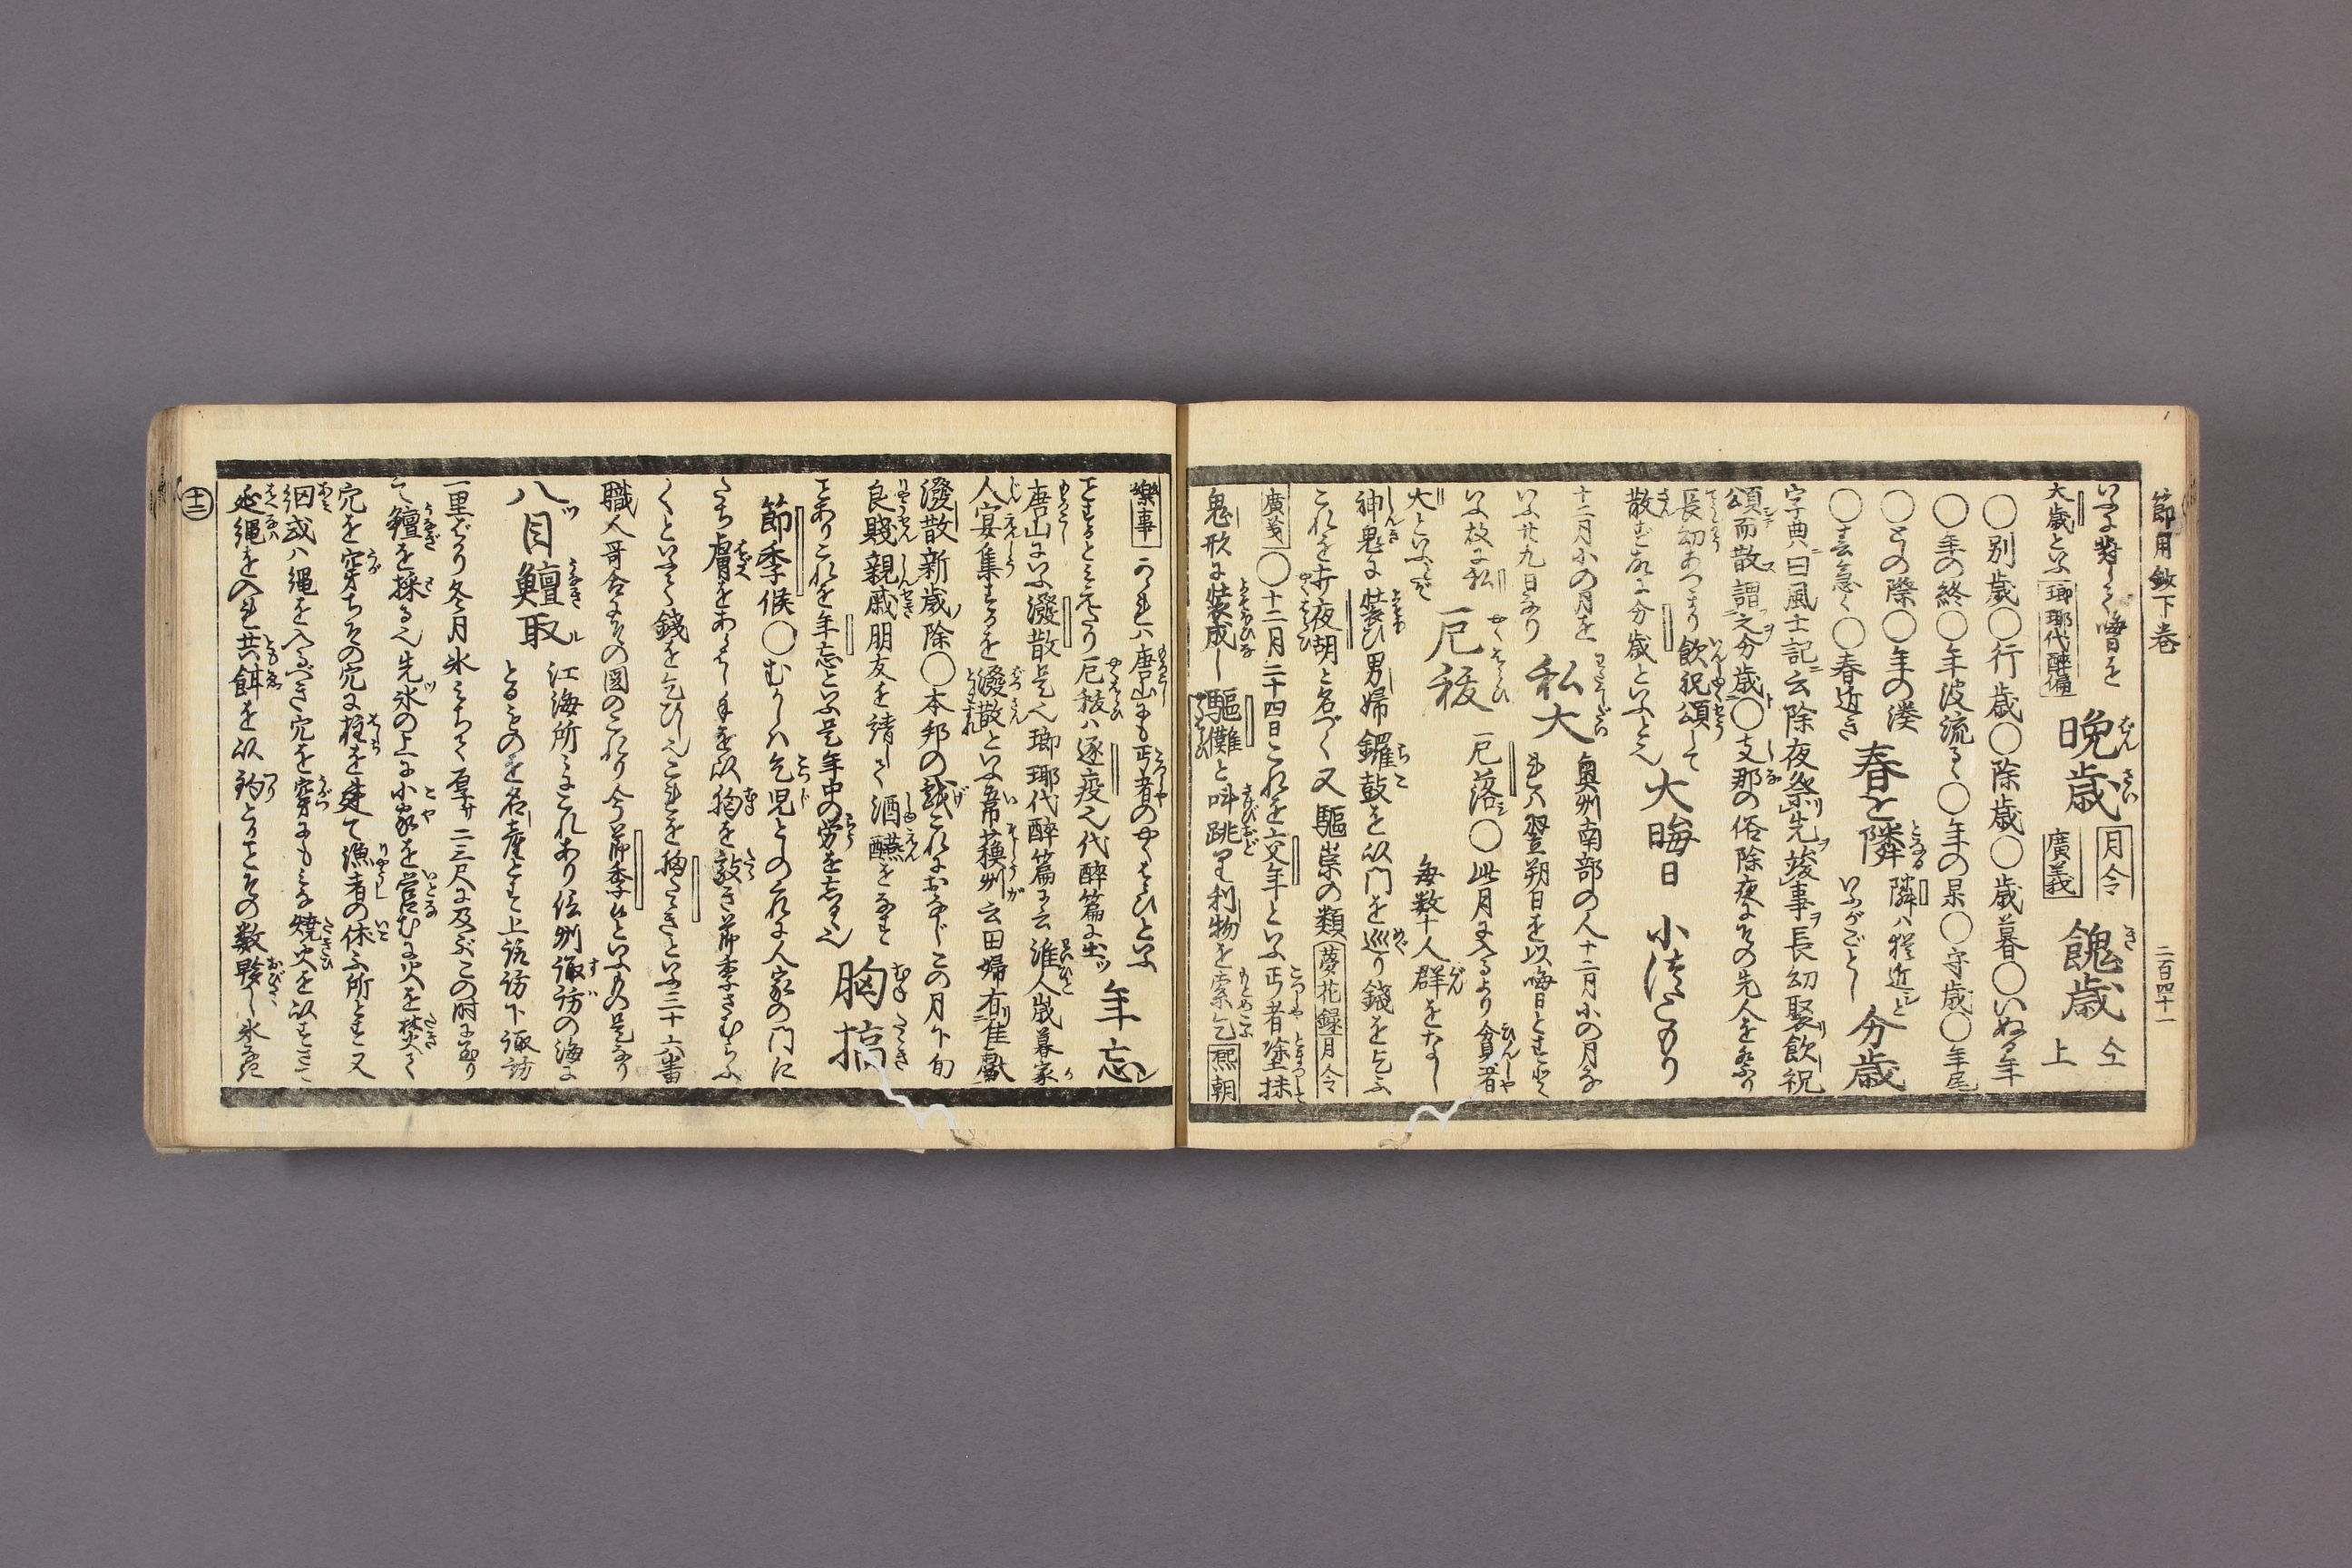 節用鈔下巻
二百四十一
大歳といふ 瑯瑘代醉編 晩歳 月令廣義 餽歳 仝上
〇別歳〇行歳〇除歳〇歳暮〇いぬる年
〇年の終〇年波流るゝ〇年の杲〇守歳〇年尾
〇としの際〇年の湊 春と隣 隣ハ猶近シと
〇春急ぐ〇春近き いふがごとし 分歳
字典ニ曰風土記ニ云除夜祭リ先ヲ竣事ヲ長幼聚リ飲祝
頌而散ス謂之ヲ分歳ト〇支那の俗除夜にその先人を祭り
長幼あつまり飲祝頌して
散ずこれを分歳といふとぞ 大晦日 小晦日
十二月小の月を 私大 奥州南部の人十二月小の月なれ
いふ廿九日なり ば翌朔日を以晦日とす
いふ故に私 厄祓 厄落シ〇此月に入るより貧者
大といふとぞ 毎数十人群をなし
神鬼に装ひ男婦鑼鼓を以門を巡り錢を乞ふ
これを打夜胡と名づく又驅祟の類 夢花録 月令
廣義 〇十二月二十四日これを交年といふ丐者塗抹
鬼形に装成し驅儺と叫跳て利物を索乞 熈朝
樂事 これハ唐山にも丐者のやくはらひといふ
ことあるとみえたり厄祓ハ逐疫也代醉篇に出ヅ 年忘レ
唐山にいふ潑散是也瑯瑘代醉篇に云淮人歳暮家
人宴集するを潑散といふ韋蘓州云田婦有リ佳獻
潑散新歳ノ除〇本邦の戯これにおなじこの月下旬
良賤親戚朋友を請して酒醼をなす
ことありこれを年忘といふ是年中の労を忘るゝ也 胸搞
節季候〇むかしハ乞児とのこれに人家の門に
たち膚をあらハし手を以胸を敲き節季さむらふ
くといふて錢を乞ひし也これを胸たゝきといふ三十六番
職人哥合にその図のこれり今節季候といふもの是なり
八ツ目鱣取ル 江海所々にこれあり信州諏訪の海に
とるものを名産とす上諏訪下諏訪
一里ばかり冬月氷みちて厚サ二三尺に及ぶこの時に至り
て鱣を採る也先ヅ氷の上に小家を営む火を焚て
穴を穿ちその穴に柱を建て漁者の休ふ所とす又
網或ハ縄を入るべき穴を穿にもみな焼火を以す
延縄を入れ共餌を以釣とることその数夥し氷
十二